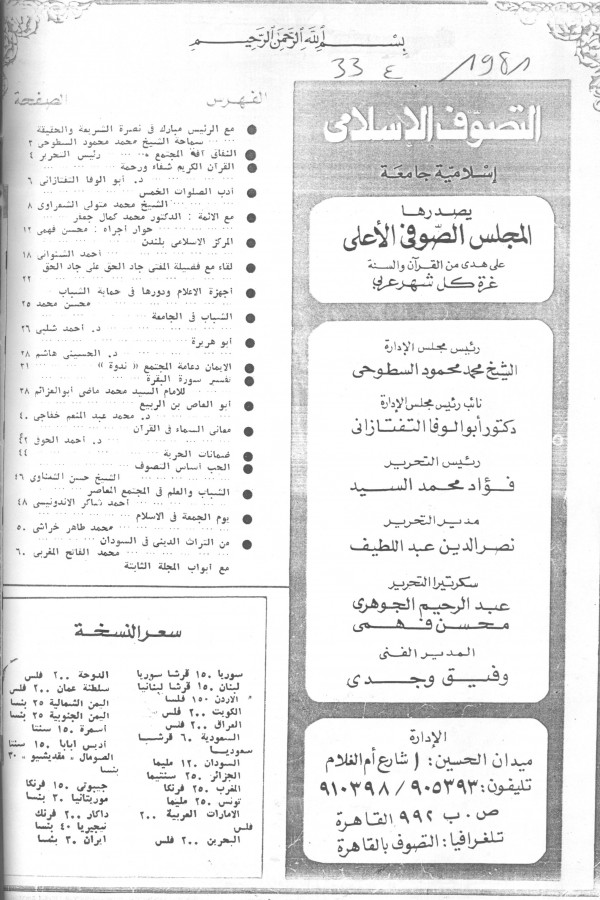 بِسْمِ اللهِ الرَّحْمَنِ الرَّحِيمِ
33 ع 1981
التصوف الإسلامى
إسلامية جامعة
يصدرها
المجلس الصوفى الأعلى
على هدى من القرآن والسنة
غرة كل شهر عربى
رئيس مجلس الإدارة
الشيخ محمد محمود السطوحى
نائب رئيس مجلس الإدارة
دكتور أبو الوفا التفتازانى
رئيس التحرير
فؤاد محمد السيد
مدير التحرير
نصر الدين عبد اللطيف
سكرتيرا التحرير
عبد الرحيم الجوهرى
محسن فهمى
المدير الفنى
وفيق وجدى
الإدارة
ميدان الحسين: ١ شارع أم الغلام
تليفون: ٩٠٥٣٩٣ / ٩١٠٣٩٨
ص . ب ٩٩٢ القاهرة
تلغرافيا: التصوف بالقاهرة
الفهرس الصفحة
مع الرئيس مبارك فى نصرة الشريعة والحقيقة
سماحة الشيخ محمد محمود السطوحى ٢
النفاق آفة المجتمع • رئيس التحرير ٤
القرآن الكريم شفاء ورحمة
د. أبو الوفا التفتازانى ٦
أدب الصلوات الخمس
الشيخ محمد متولى الشعراوى ٨
مع الائمة : الدكتور محمد كمال جعفر
حوار اجراه : محسن فهمى ١٢
المركز الاسلامى بلندن
أحمد الشنوانى ١٨
لقاء مع فضيلة المفتى جاد الحق على جاد الحق
٢٢
أجهزة الاعلام ودورها فى حماية الشباب
محسن محمد ٢٥
الشباب فى الجامعة
د. أحمد شلبى ٢٦
أبو هريرة
د. الحسينى هاشم ٢٨
الايمان دعامة المجتمع « ندوة » ٣١
تفسير سورة البقرة
للامام السيد محمد ماضى ابو العزائم ٣٨
أبو العاص بن الربيع
د. محمد عبد المنعم خفاجى ٤٠
معانى السماء فى القرآن
د. أحمد الحوفى ٤٢
ضمانات الحرية ٤٤
الحب أساس التصوف
الشيخ حسن الشناوى ٤٦
الشباب والعلم فى المجتمع المعاصر
أحمد شاكر الاندونيسى ٤٨
يوم الجمعة فى الاسلام
محمد طاهر خراشى ٥٠
من التراث الدينى فى السودان
محمد الفاتح المغربى ٦٠
مع أبواب المجلة الثابتة
سعر النسخة
سوريا ١٥٠ قرشا سوريا
لبنان ١٥٠ قرشا لبنانيا
الاردن ١٥٠ فلسا
الكويت ٢٠٠ فلس
العراق ٢٠٠ فلس
السعودية ٦٠ قرشا
سعوديا
السودان ١٢٠ مليما
الجزائر ٢٥٠ سنتيما
المغرب ٢٥٠ فرنكا
تونس ٢٥٠ مليما
الامارات العربية ٢٠٠
فلس
البحرين ٢٠٠ فلس
الدوحة ٢٠٠ فلس
سلطنة عمان ٢٠٠ فلس
اليمن الشمالية ٢٥ بنسا
اليمن الجنوبية ٢٥ بنسا
أسمرة ١٥٠ سنتا
أديس ابابا ١٥٠ سنتا
الصومال « مقديشيو » ٣٠
بنسا
جيبوتى ١٥٠ فرنكا
موريتانيا ٣٠ بنسا
داكار ٢٠٠ فرنك
نيجيريا ٤٠ بنسا
ايران ٣٠ بنسا